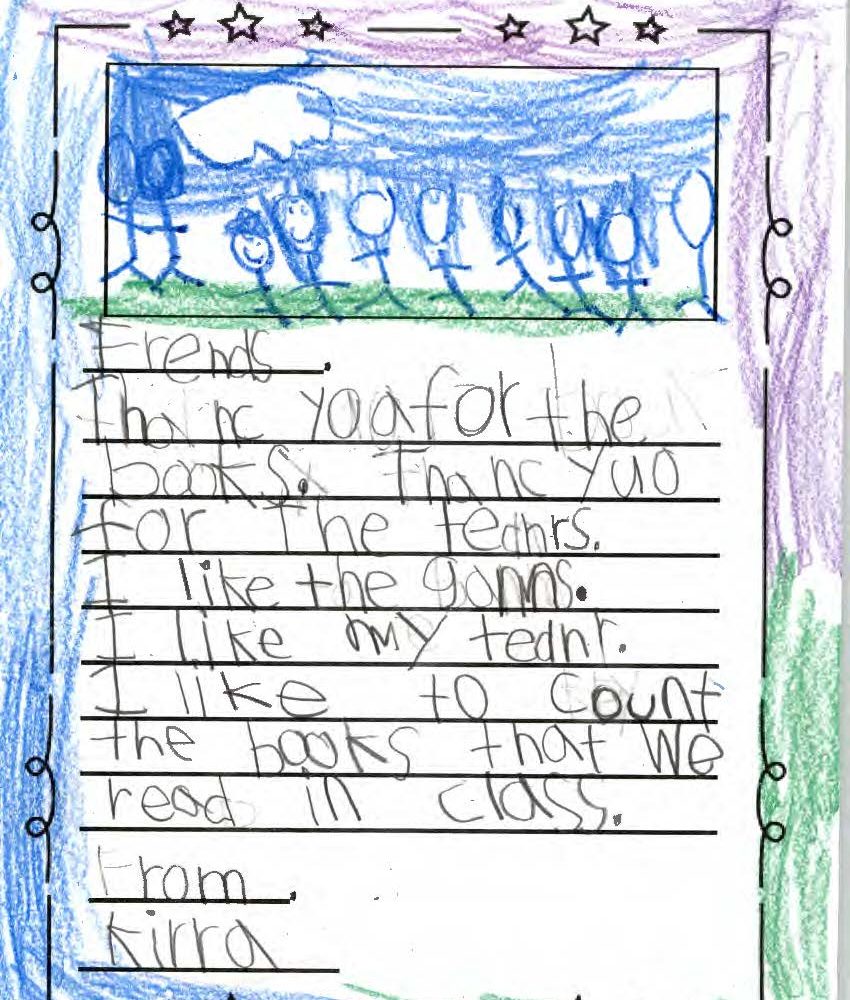 Frends.
Thanc yoa for the
books. Thanc yuo
for The teahrs.
I like the gonns.
I like my teahr.
I like to Count
the books that We
read in class.
From.
Kirra